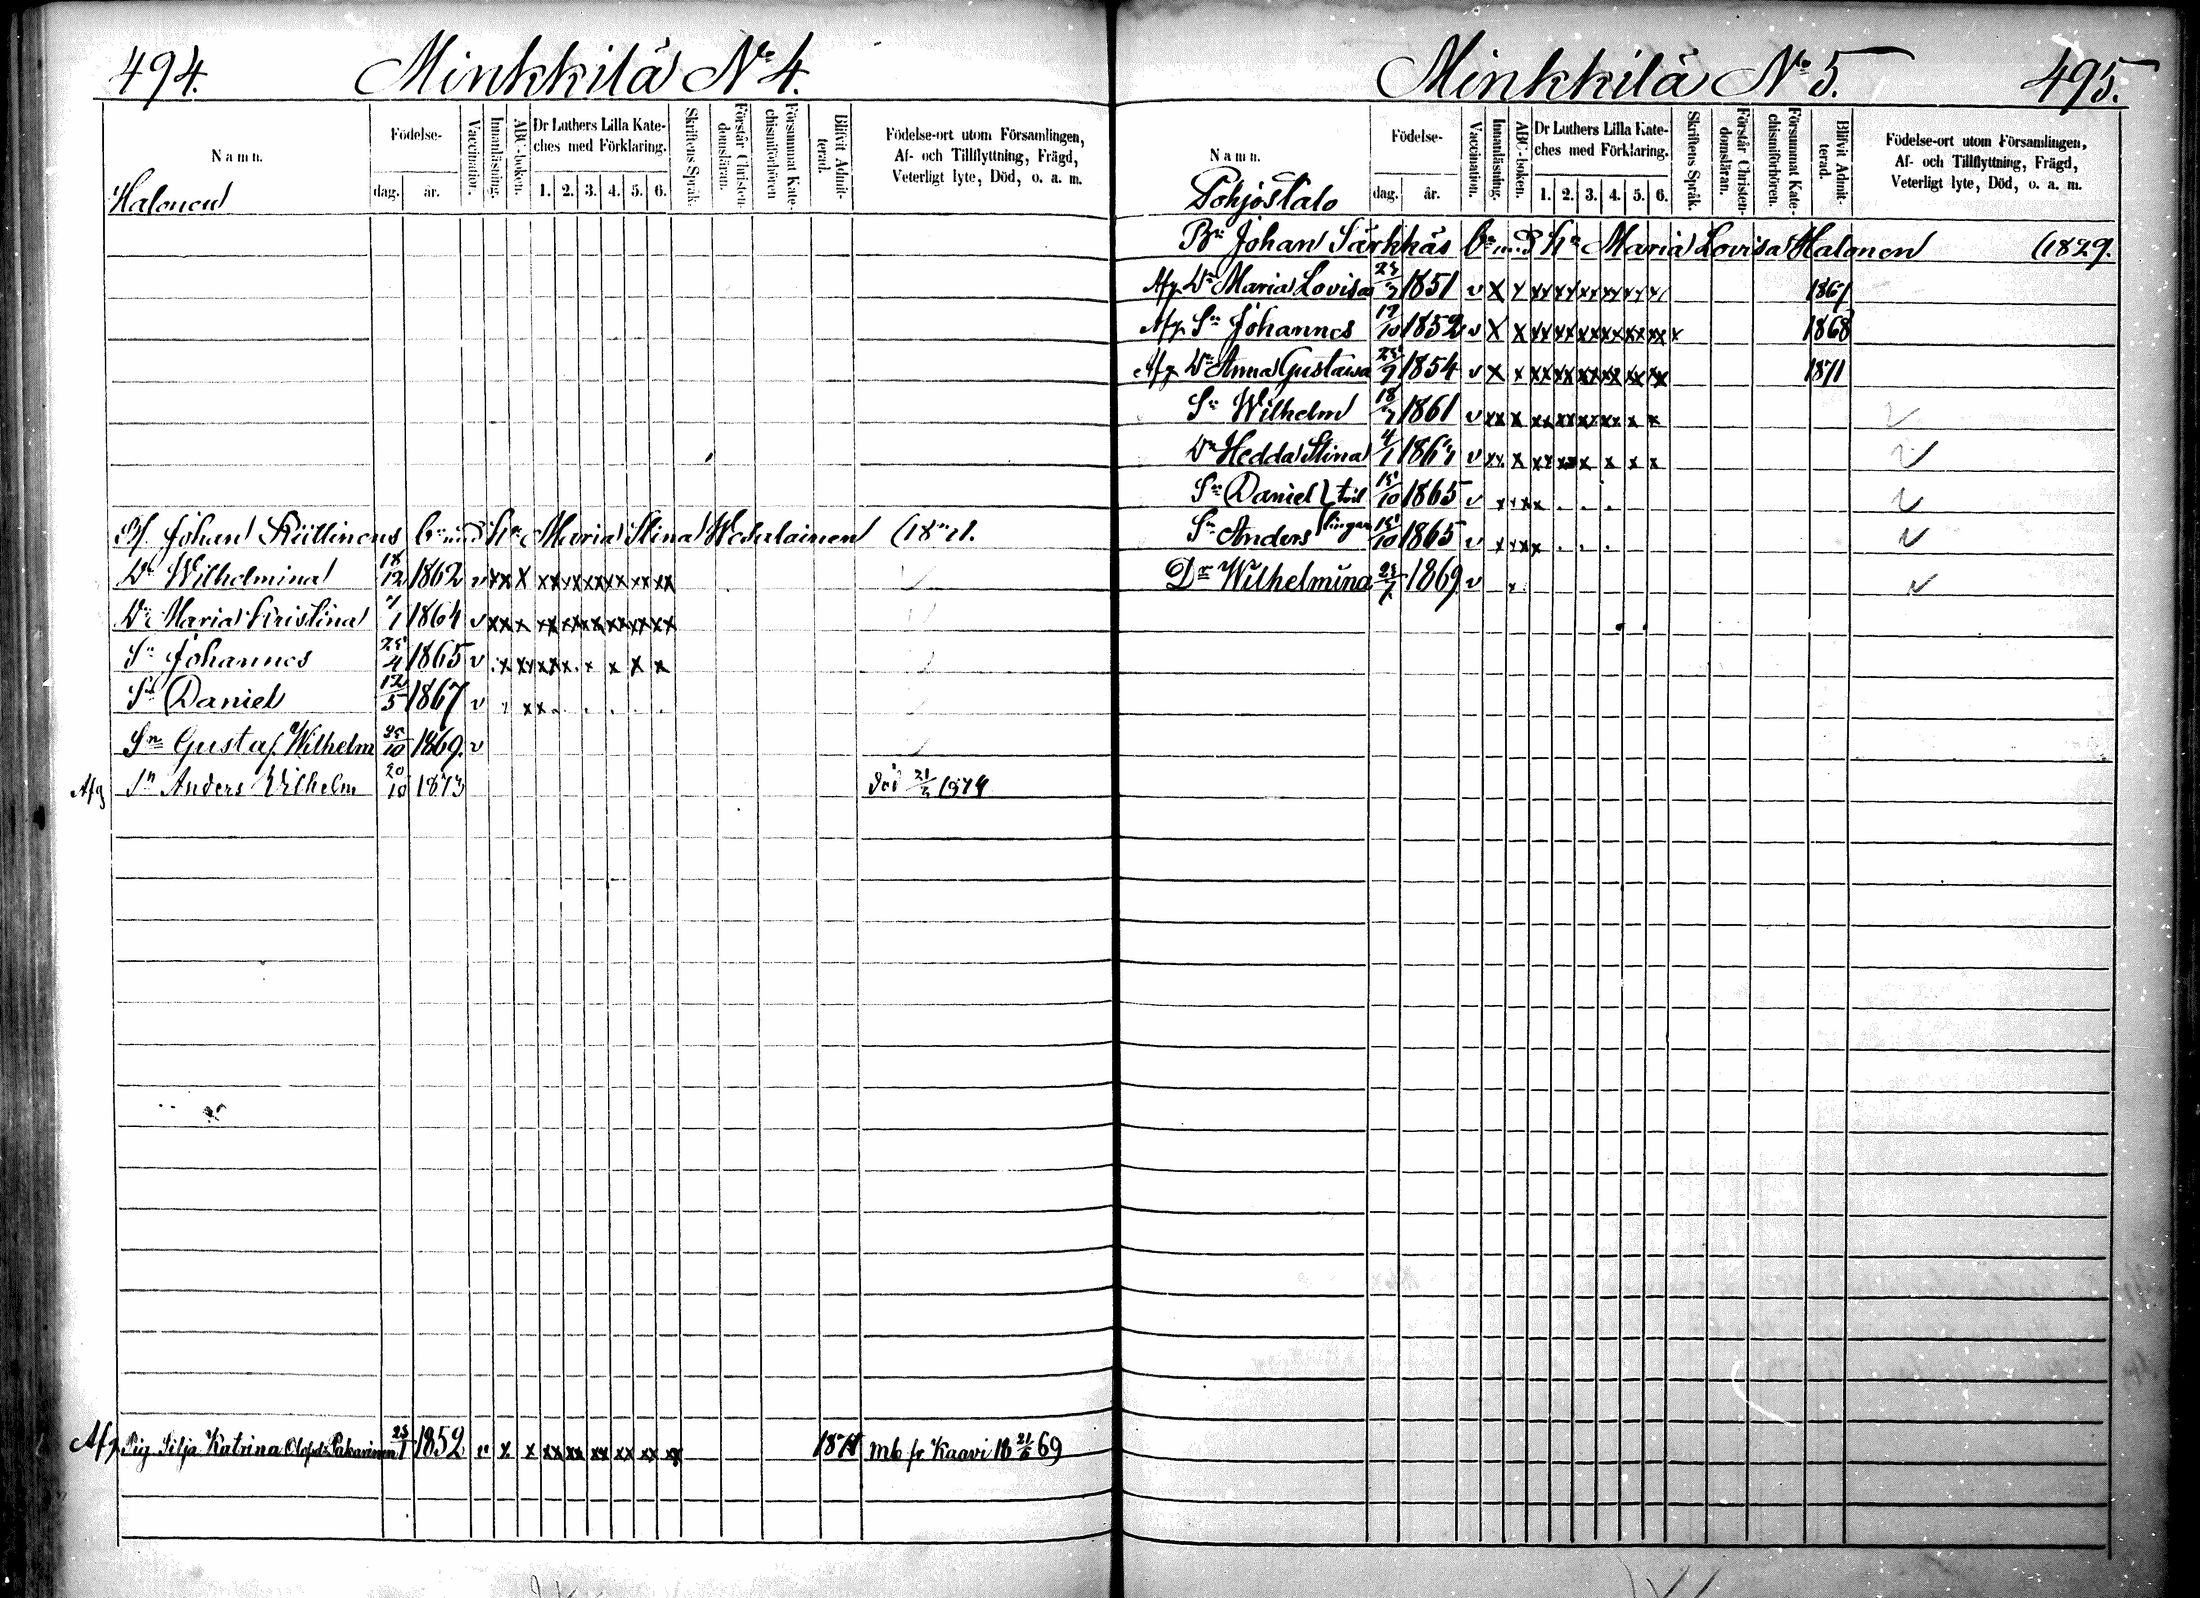 494. Minkkilä No 4.
Namn.
Födelse-
dag. år.
Vaccination.
Innanläsning.
ABC-boken.
Dr Luthers Lilla Kate-
ches med Förklaring.
1. 2. 3. 4. 5. 6.
Skriftens Språk.
Förstår Christen-
domsläran.
Försummat Kate-
chismiförhören
Blifvit Admit-
terad.
Födelse-ort utom Församlingen,
Af- och Tillflyttning, Frägd,
Veterligt lyte, Död, o. a. m.
Halonen
Johan m. d. h. Maria Stina
Dr Wilhelmina 18/12 1862 v xx x xx xx xx xx xx xx
Dr Maria Kristina 7/1 1864 v xx x xx xx xx xx xx xx
Sn Johannes 25/4 1865 v
Sn Daniel 12/5 1867 v
Sn Gustaf Wilhelm 25/10 1869. v
Afg Sn Anders Vilhelm 20/10 1873 död 1874
Afg Pig Silja Katrina Olofsd. Pakarinen 23/1 1852 v x x xx xx xx xx xx xx 1871 mb fr Kaavi 18 21/6 69
Minkkilä No 5. 495.
Namn.
Födelse-
dag. år.
Vaccination.
Innanläsning.
ABC-boken.
Dr Luthers Lilla Kate-
ches med Förklaring.
1. 2. 3. 4. 5. 6.
Skriftens Språk.
Förstår Christen-
domsläran.
Försummat Kate-
chismiförhören.
Blifvit Admit-
terad.
Födelse-ort utom Församlingen,
Af- och Tillflyttning, Frägd,
Veterligt lyte, Död, o. a. m.
Pohjostalo
Johan Särkkäs m. d. h. Maria Lovisa Halonen (1829.
Afg. Dr Maria Lovisa 1851 v x x xx xx xx xx xx xx 1867
Afg. Sn Johannes 1852 v x x xx xx xx xx xx xx x 1868
Afg. Dr Anna Gustawa 25/9 1854 v x x xx xx xx xx xx xx 1871
Sn Wilhelm 1861 v xx x xx xx xx xx x x
Dr Hedda Stina 4/1 v xx x xx xx x x x x
Sn Daniel } tvil 15/10 1865 v
Sn Anders } lingar 15/10 1865 v
Dr Wilhelmina 1869 v